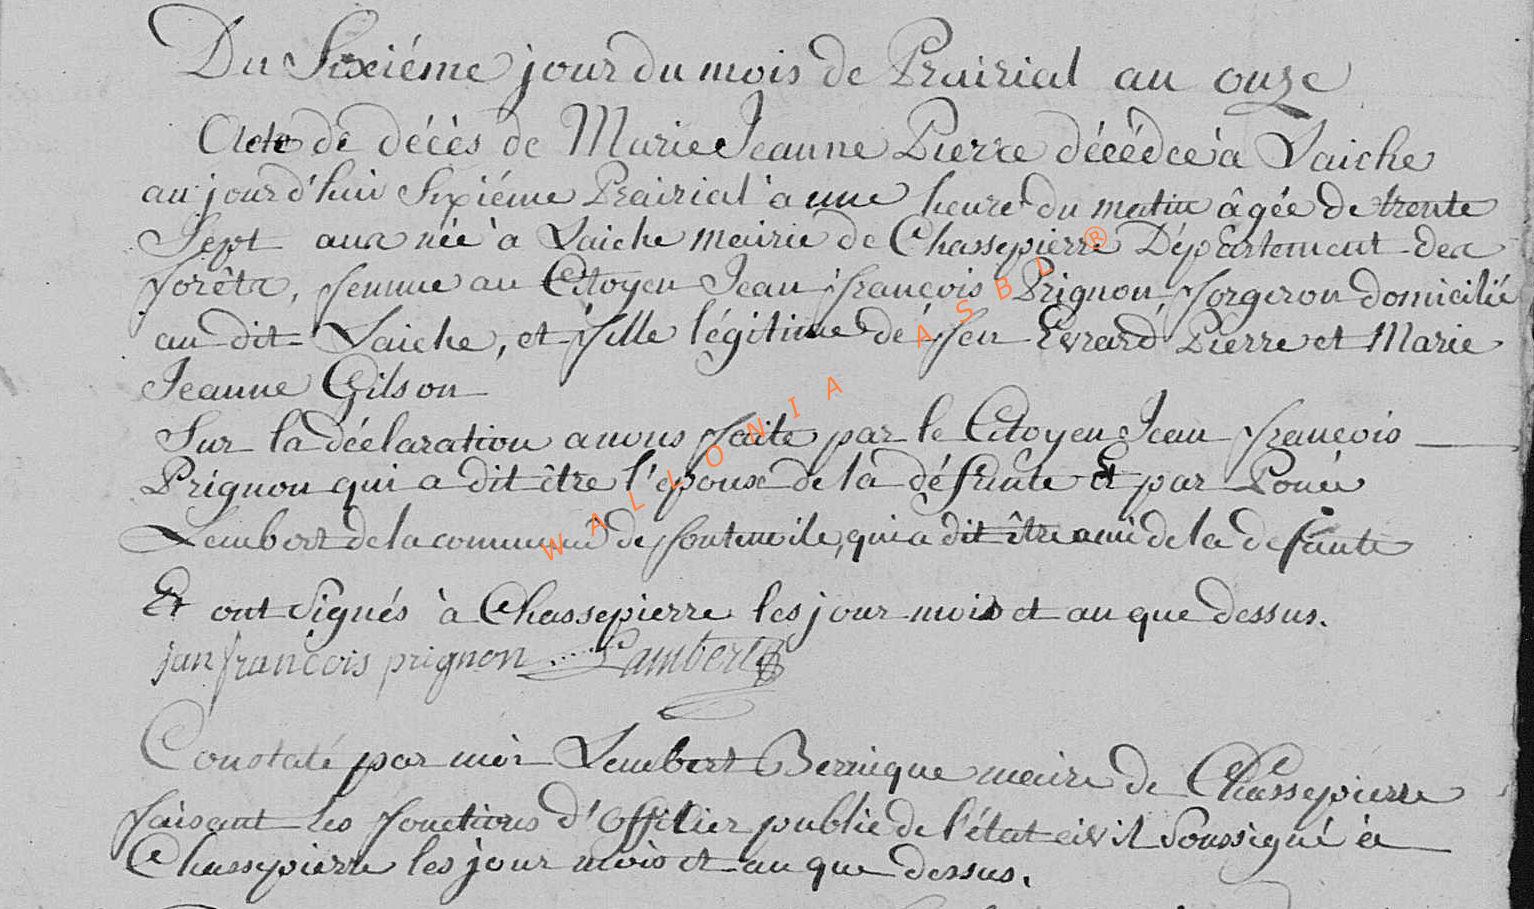 Du Sixiéme jour du mois de Prairial an onze
Acte de décès de Marie Jeanne Pierre décédée à Laiche
aujourd'hui Sixiéme Prairial à une heure du matin âgée de trente
Sept ans née à Laiche mairie de Chassepierre Département des
forêts, femme au Citoyen Jean françois Prignon, forgeron domicilié
au dit Laiche, et fille légitime de feu Evrard Pierre et Marie
Jeanne Gilson
Sur la déclaration a nous faite par le Citoyen Jean françois
Prignon qui a dit être l'epoux de la défunte Et par
Lambert de la commune de fontenoile, qui a dit être ami de la defunte
Et ont Signés à Chassepierre les jour mois et an que dessus.
jan francois prignon Lambert
Constaté par moi Lambert Bernique maire de Chassepierre
faisant les fonctions d'Officier public de l'état civil Soussigné à
Chassepierre les jour mois et an que dessus.
WALLONIA ASBL ®